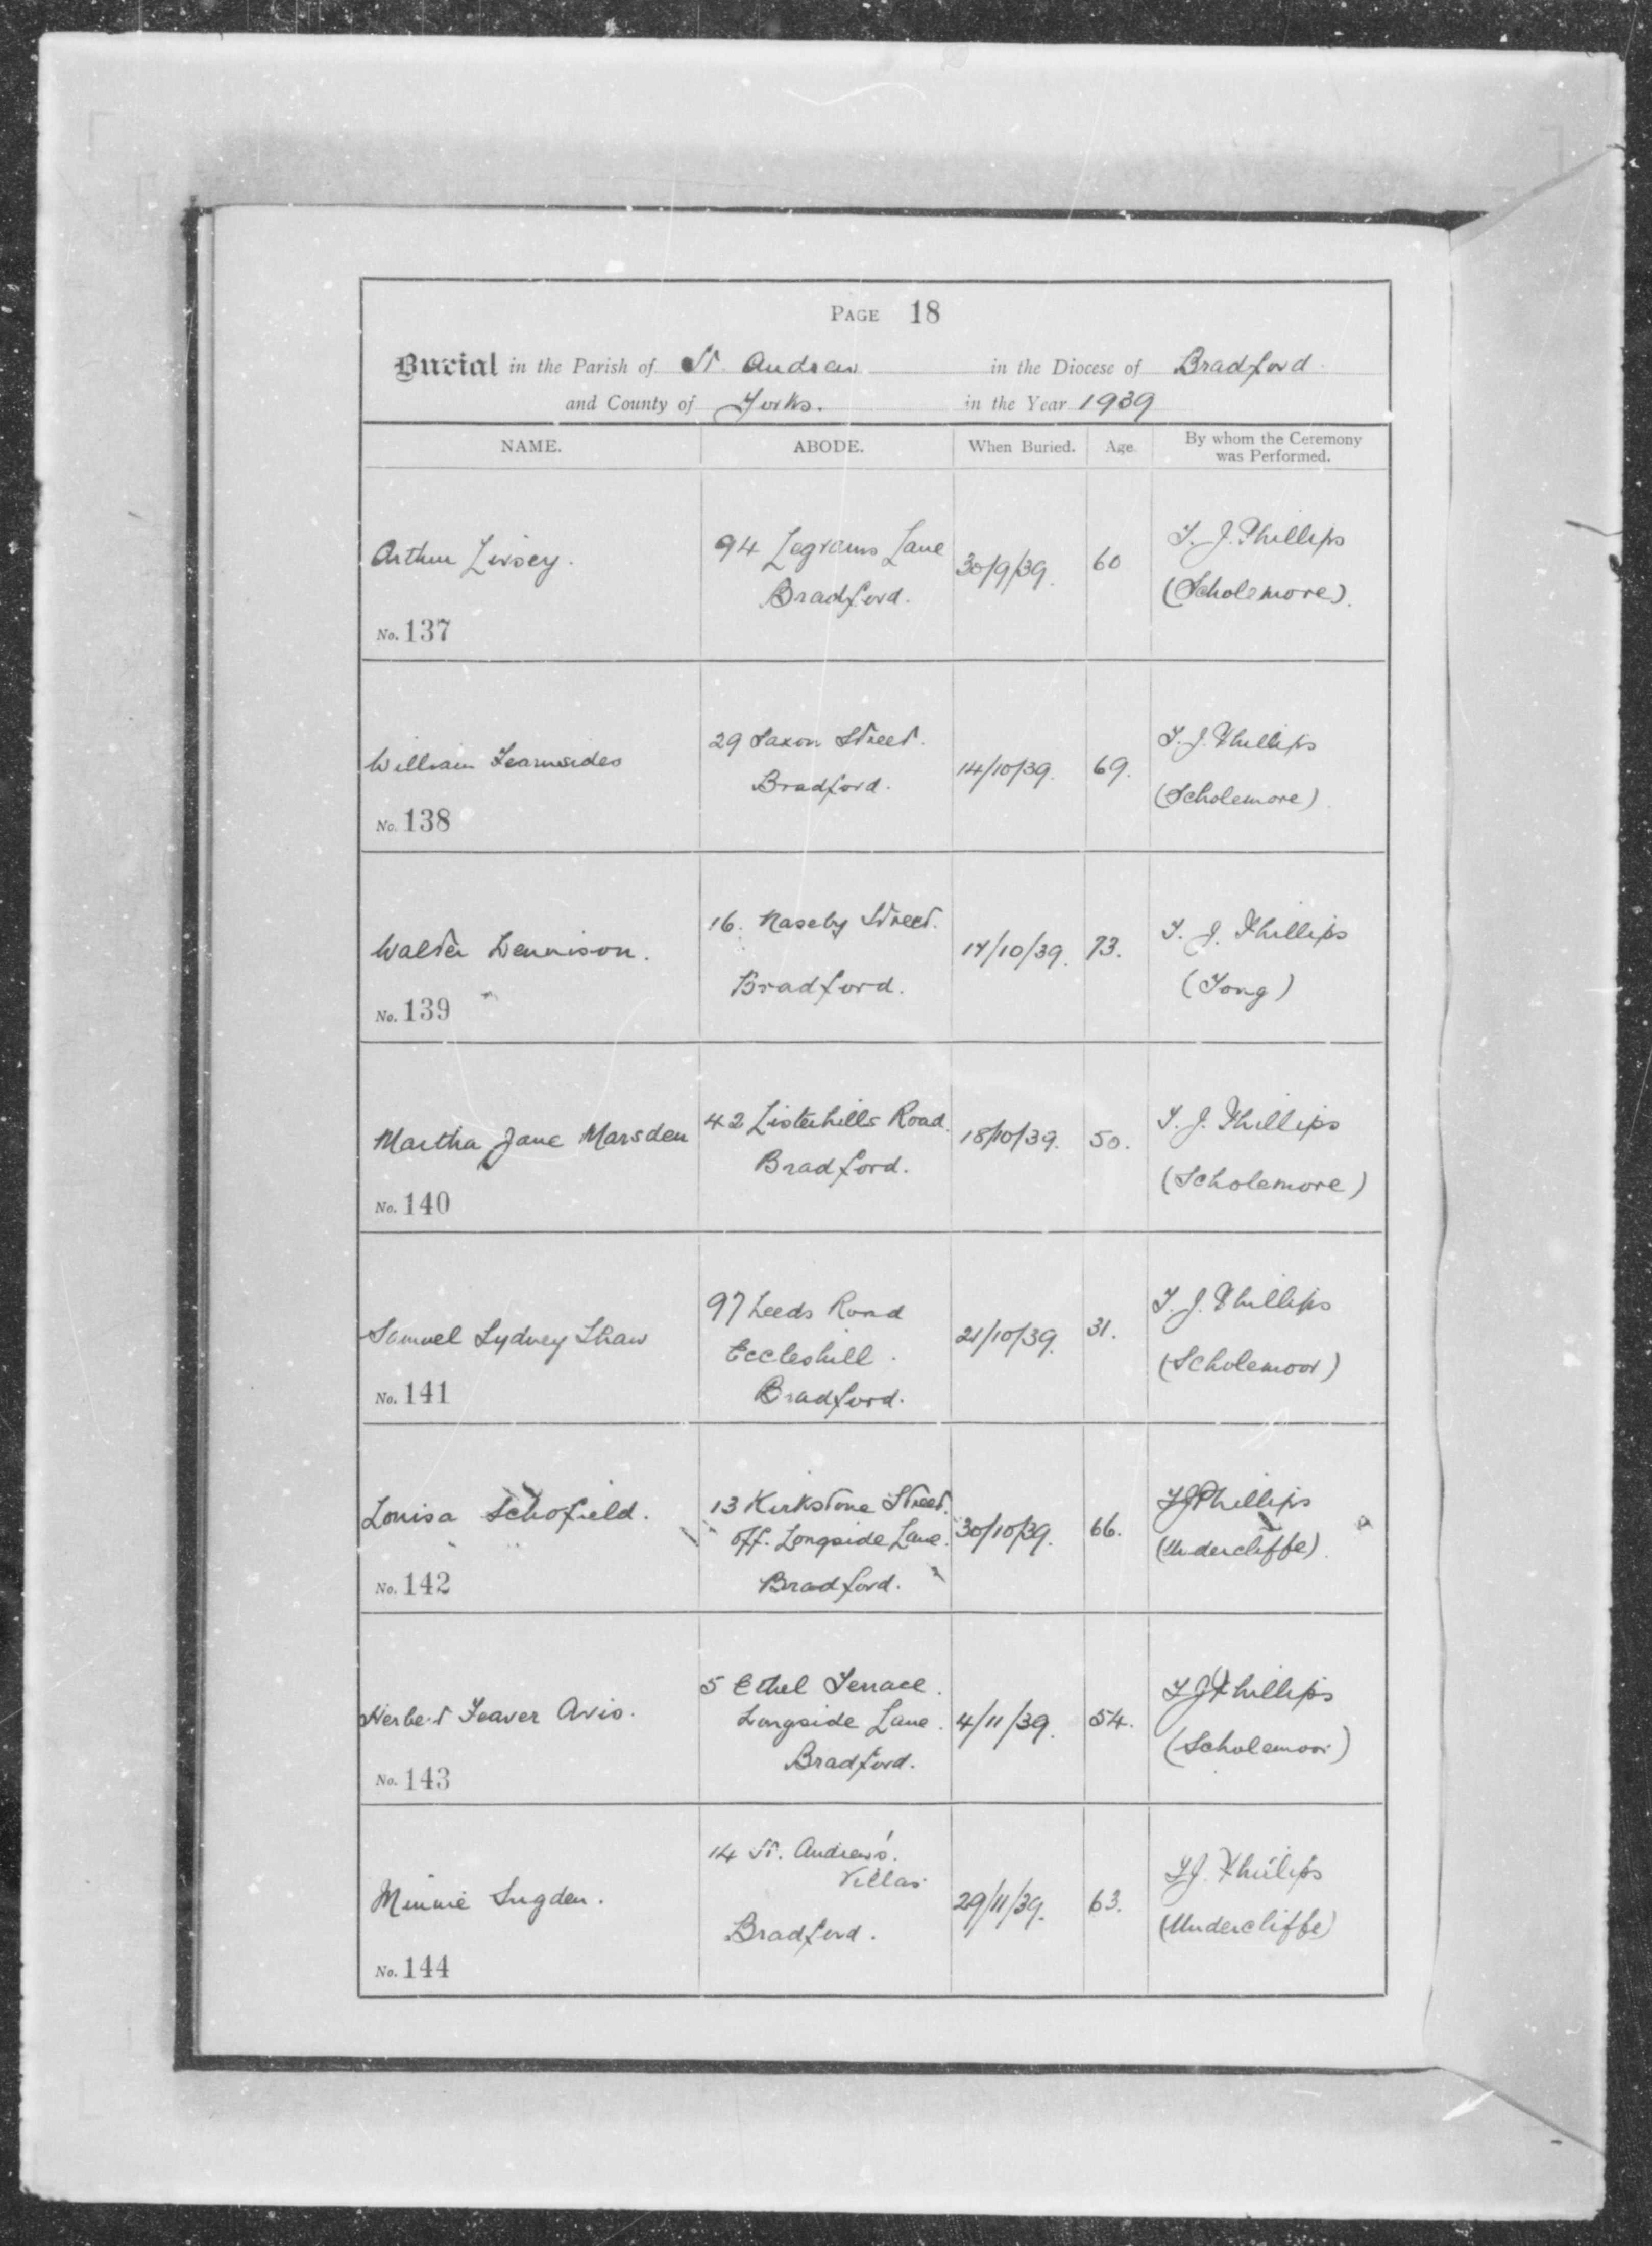 PAGE 18
Burial in the Parish of St. Andrew in the Diocese of Bradford
and County of Yorks. in the Year 1939
NAME. ABODE. When Buried. Age. By whom the Ceremony was Performed.
Arthur Livsey. 94 Legrams Lane 30/9/39. 60 T. J. Phillips
Bradford. (Scholemore).
No. 137
William Fearnsides 29 Saxon Street. 14/10/39. 69. T. J. Phillips
Bradford. (Scholemore)
No. 138
Walter Dennison. 16. Naseby Street. 17/10/39. 73. T. J. Phillips
Bradford. (Tong)
No. 139
Martha Jane Marsden 42 Listerhills Road. 18/10/39. 50. T. J. Phillips
Bradford. (Scholemore)
No. 140
Samuel Sydney Shaw 97 Leeds Road 21/10/39. 31. T. J. Phillips
Eccleshill. (Scholemoor)
Bradford.
No. 141
Louisa Schofield. 13 Kirkstone Street. 30/10/39. 66. T J Phillips
off. Longside Lane. (Undercliffe).
Bradford.
No. 142
Herbert Feaver Avis. 5 Ethel Terrace. 4/11/39. 54. T J Phillips
Longside Lane. (Scholemoor)
Bradford.
No. 143
Minnie Sugden. 14 St. Andrew's. 29/11/39. 63. T J. Phillips
Villas (Undercliffe)
Bradford.
No. 144